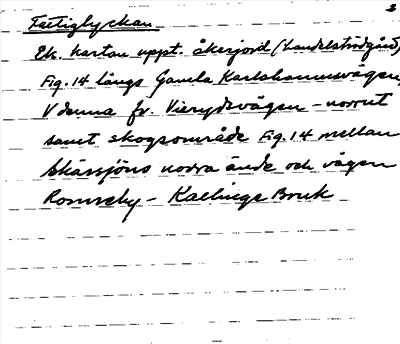 3
Fattiglyckan
Ek. kartan uppt. åkerjord (Handelsträdgård)
Fig. 14 längs Gamla Karlshamnsvägen,
V denna fr. Vierydsvägen - norrut
samt skogsområde Fig. 14 mellan
Skärsjöns norra ände och vägen
Ronneby - Kallinge Bruk